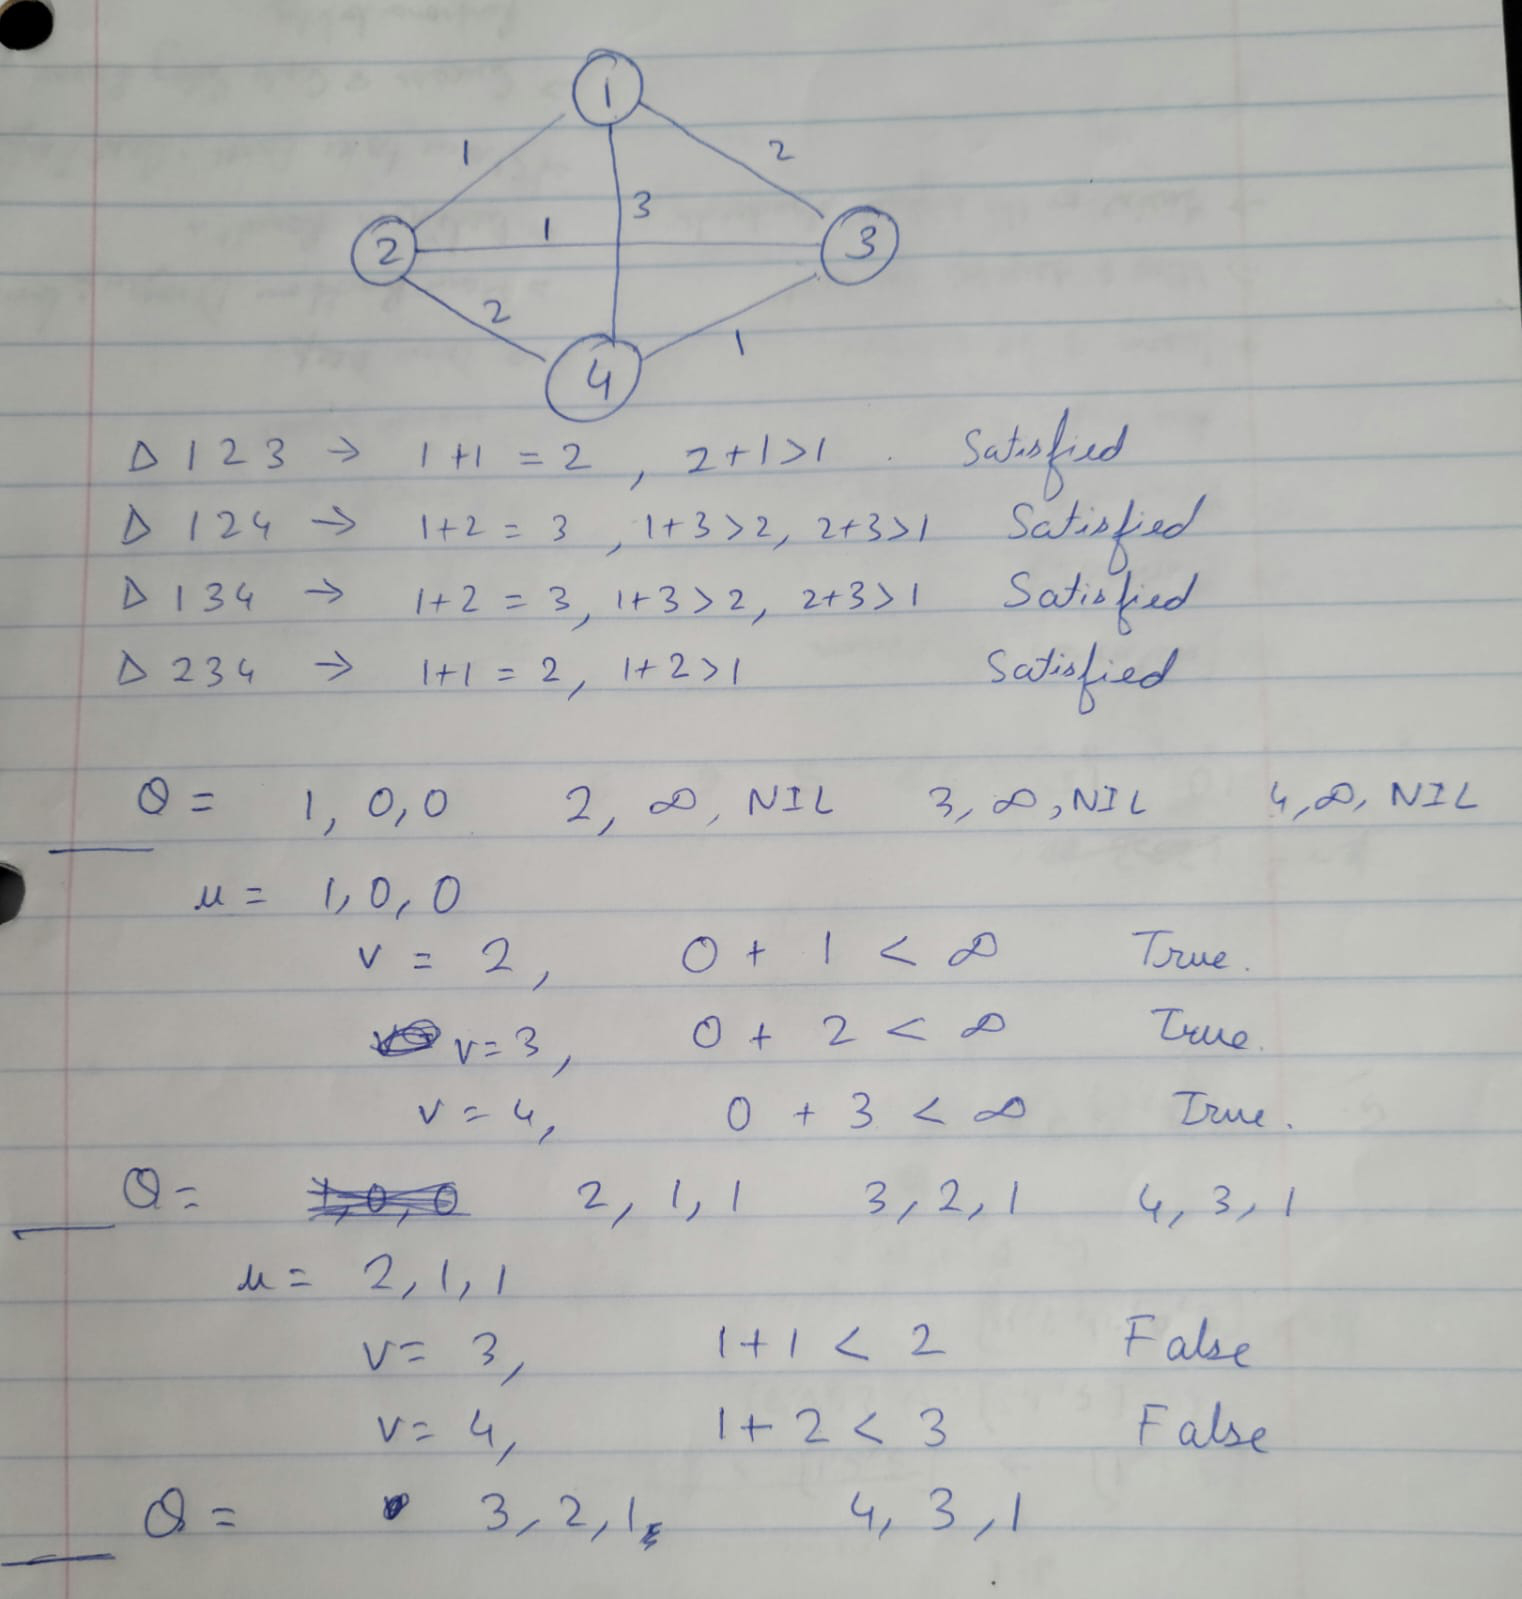 1
1 2
3
1
2 3
2 1
4
Δ 1 2 3 → 1+1 = 2 , 2+1>1 . Satisfied
Δ 1 2 4 → 1+2 = 3 , 1+3>2, 2+3>1 Satisfied
Δ 1 3 4 → 1+2 = 3, 1+3>2, 2+3>1 Satisfied
Δ 2 3 4 → 1+1 = 2, 1+2>1 Satisfied
Q = 1, 0, 0 2, ∞, NIL 3, ∞, NIL 4, ∞, NIL
u = 1, 0, 0
v = 2, 0 + 1 < ∞ True.
v = 3, 0 + 2 < ∞ True.
v = 4, 0 + 3 < ∞ True.
Q = 1, 0, 0 2, 1, 1 3, 2, 1 4, 3, 1
u = 2, 1, 1
v = 3, 1+1 < 2 False
v = 4, 1+2 < 3 False
Q = 3, 2, 1 4, 3, 1